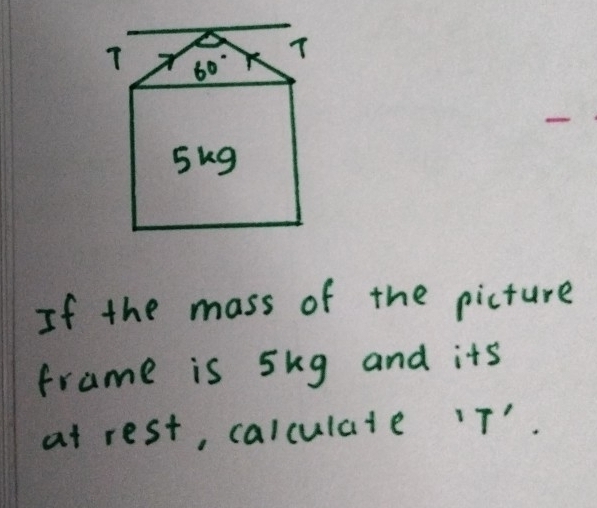 T T
60°
5kg
If the mass of the picture
frame is 5kg and its
at rest, calculate 'T'.